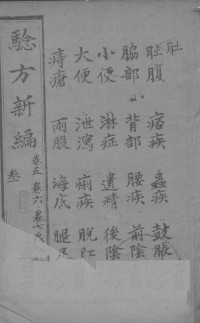 肚
肚腹 痞疾 蟲疾 鼓脹
脇部 背部 腰疾 前陰
小便 淋症 遺精 後陰
大便 泄瀉 痢疾 脫肛
痔瘡 兩股 海底 腿足
驗方新編
卷五 卷六 卷七
叁